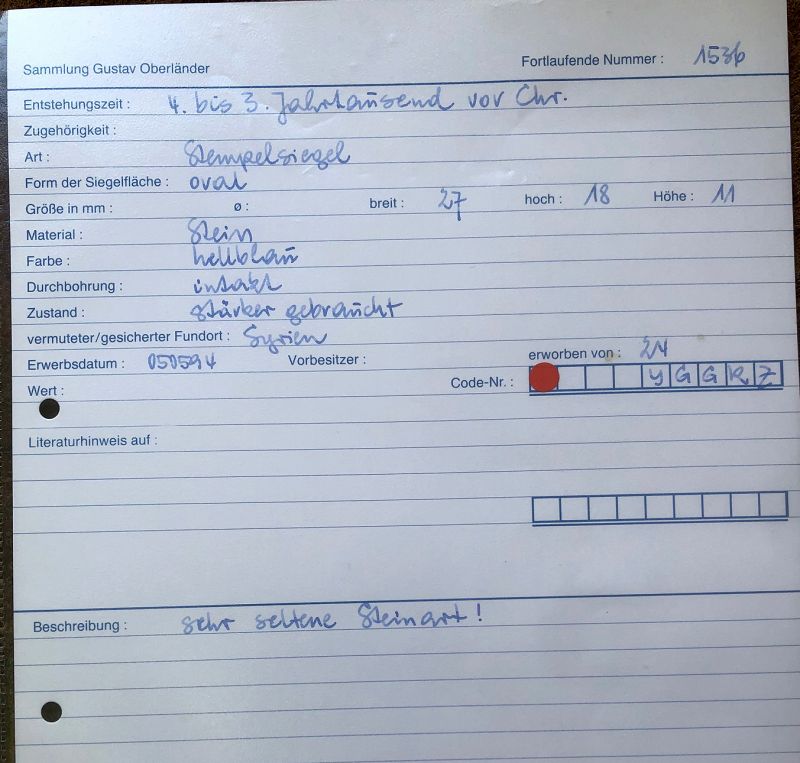 Sammlung Gustav Oberländer Fortlaufende Nummer : 1536
Entstehungszeit : 4. bis 3. Jahrtausend vor Chr.
Zugehörigkeit :
Art : Stempelsiegel
Form der Siegelfläche : oval
Größe in mm : ø : breit : 27 hoch : 18 Höhe : 11
Material : Stein
Farbe : hellblau
Durchbohrung : intakt
Zustand : stärker gebraucht
vermuteter/gesicherter Fundort : Syrien
Erwerbsdatum : 050594 Vorbesitzer : erworben von : 24
Wert : Code-Nr. : Y G G K Z
Literaturhinweis auf :
Beschreibung : sehr seltene Steinart !